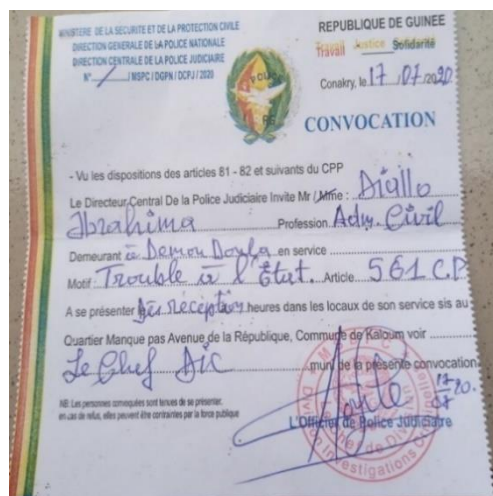 MINISTERE DE LA SECURITE ET DE LA PROTECTION CIVILE
DIRECTION GENERALE DE LA POLICE NATIONALE
DIRECTION CENTRALE DE LA POLICE JUDICIAIRE
N° / MSPC / DGPN / DCPJ / 2020
REPUBLIQUE DE GUINEE
Travail Justice Solidarité
Conakry, le 17/07/2020
POLICE
CONVOCATION
- Vu les dispositions des articles 81 - 82 et suivants du CPP
Le Directeur Central De la Police Judiciaire Invite Mr / Mme : Diallo
Ibrahima Profession Adm. Civil
Demeurant à en service
Motif : Trouble à l'État. Article 561 C.P
A se présenter Dès réception heures dans les locaux de son service sis au
Quartier Manque pas Avenue de la République, Commune de Kaloum voir
Le Chef DIC muni de la présente convocation
NB: Les personnes convoquées sont tenues de se présenter.
en cas de refus, elles peuvent être contraintes par la force publique
17/07 20.
L'Officier de Police Judiciaire